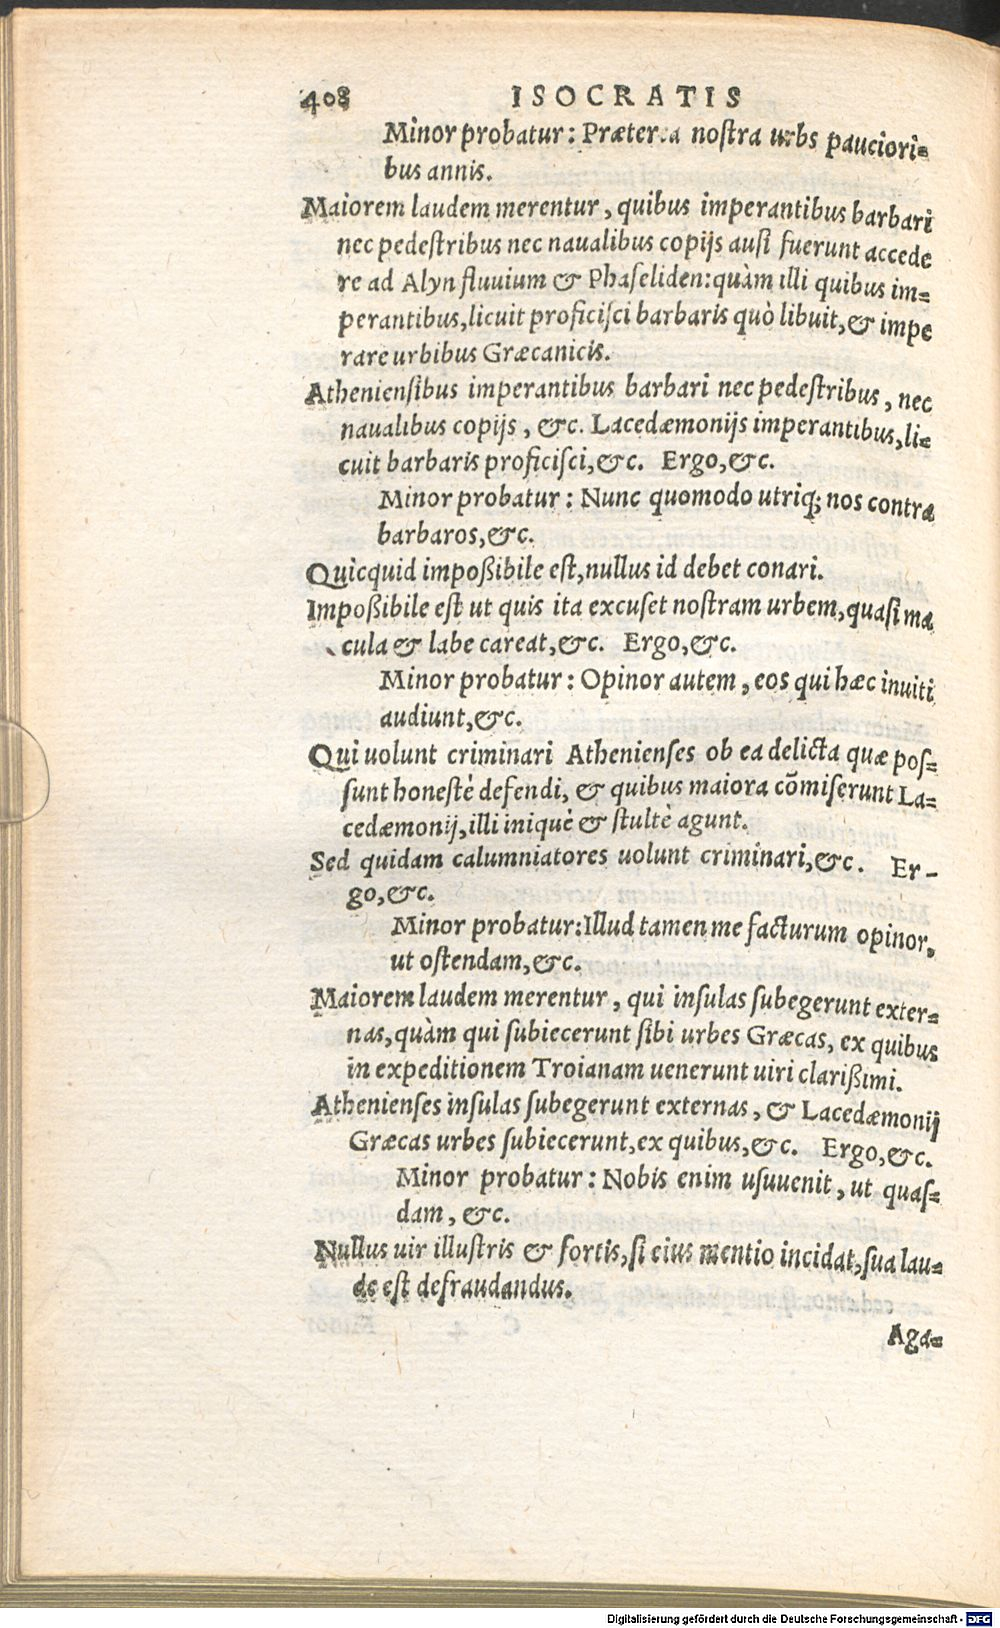 408 ISOCRATIS
Minor probatur: Præterea nostra urbs pauciori-
bus annis.
Maiorem laudem merentur, quibus imperantibus barbari
nec pedestribus nec naualibus copijs ausi fuerunt accede
re ad Alyn fluuium & Phaseliden: quàm illi quibus im-
perantibus, licuit proficisci barbaris quò libuit, & impe
rare urbibus Græcanicis.
Atheniensibus imperantibus barbari nec pedestribus, nec
naualibus copijs, &c. Lacedæmonijs imperantibus, li-
cuit barbaris proficisci, &c. Ergo, &c.
Minor probatur: Nunc quomodo utriq; nos contra
barbaros, &c.
Quicquid impoßibile est, nullus id debet conari.
Impoßibile est ut quis ita excuset nostram urbem, quasi ma
cula & labe careat, &c. Ergo, &c.
Minor probatur: Opinor autem, eos qui hæc inuiti
audiunt, &c.
Qui uolunt criminari Athenienses ob ea delicta quæ pos-
sunt honestè defendi, & quibus maiora cõmiserunt La-
cedæmonij, illi iniquè & stultè agunt.
Sed quidam calumniatores uolunt criminari, &c. Er-
go, &c.
Minor probatur: Illud tamen me facturum opinor,
ut ostendam, &c.
Maiorem laudem merentur, qui insulas subegerunt exter-
nas, quàm qui subiecerunt sibi urbes Græcas, ex quibus
in expeditionem Troianam uenerunt uiri clarißimi.
Athenienses insulas subegerunt externas, & Lacedæmonij
Græcas urbes subiecerunt, ex quibus, &c. Ergo, &c.
Minor probatur: Nobis enim usuuenit, ut quas-
dam, &c.
Nullus uir illustris & fortis, si eius mentio incidat, sua lau-
de est defraudandus.
Aga-
Digitalisierung gefördert durch die Deutsche Forschungsgemeinschaft - DFG